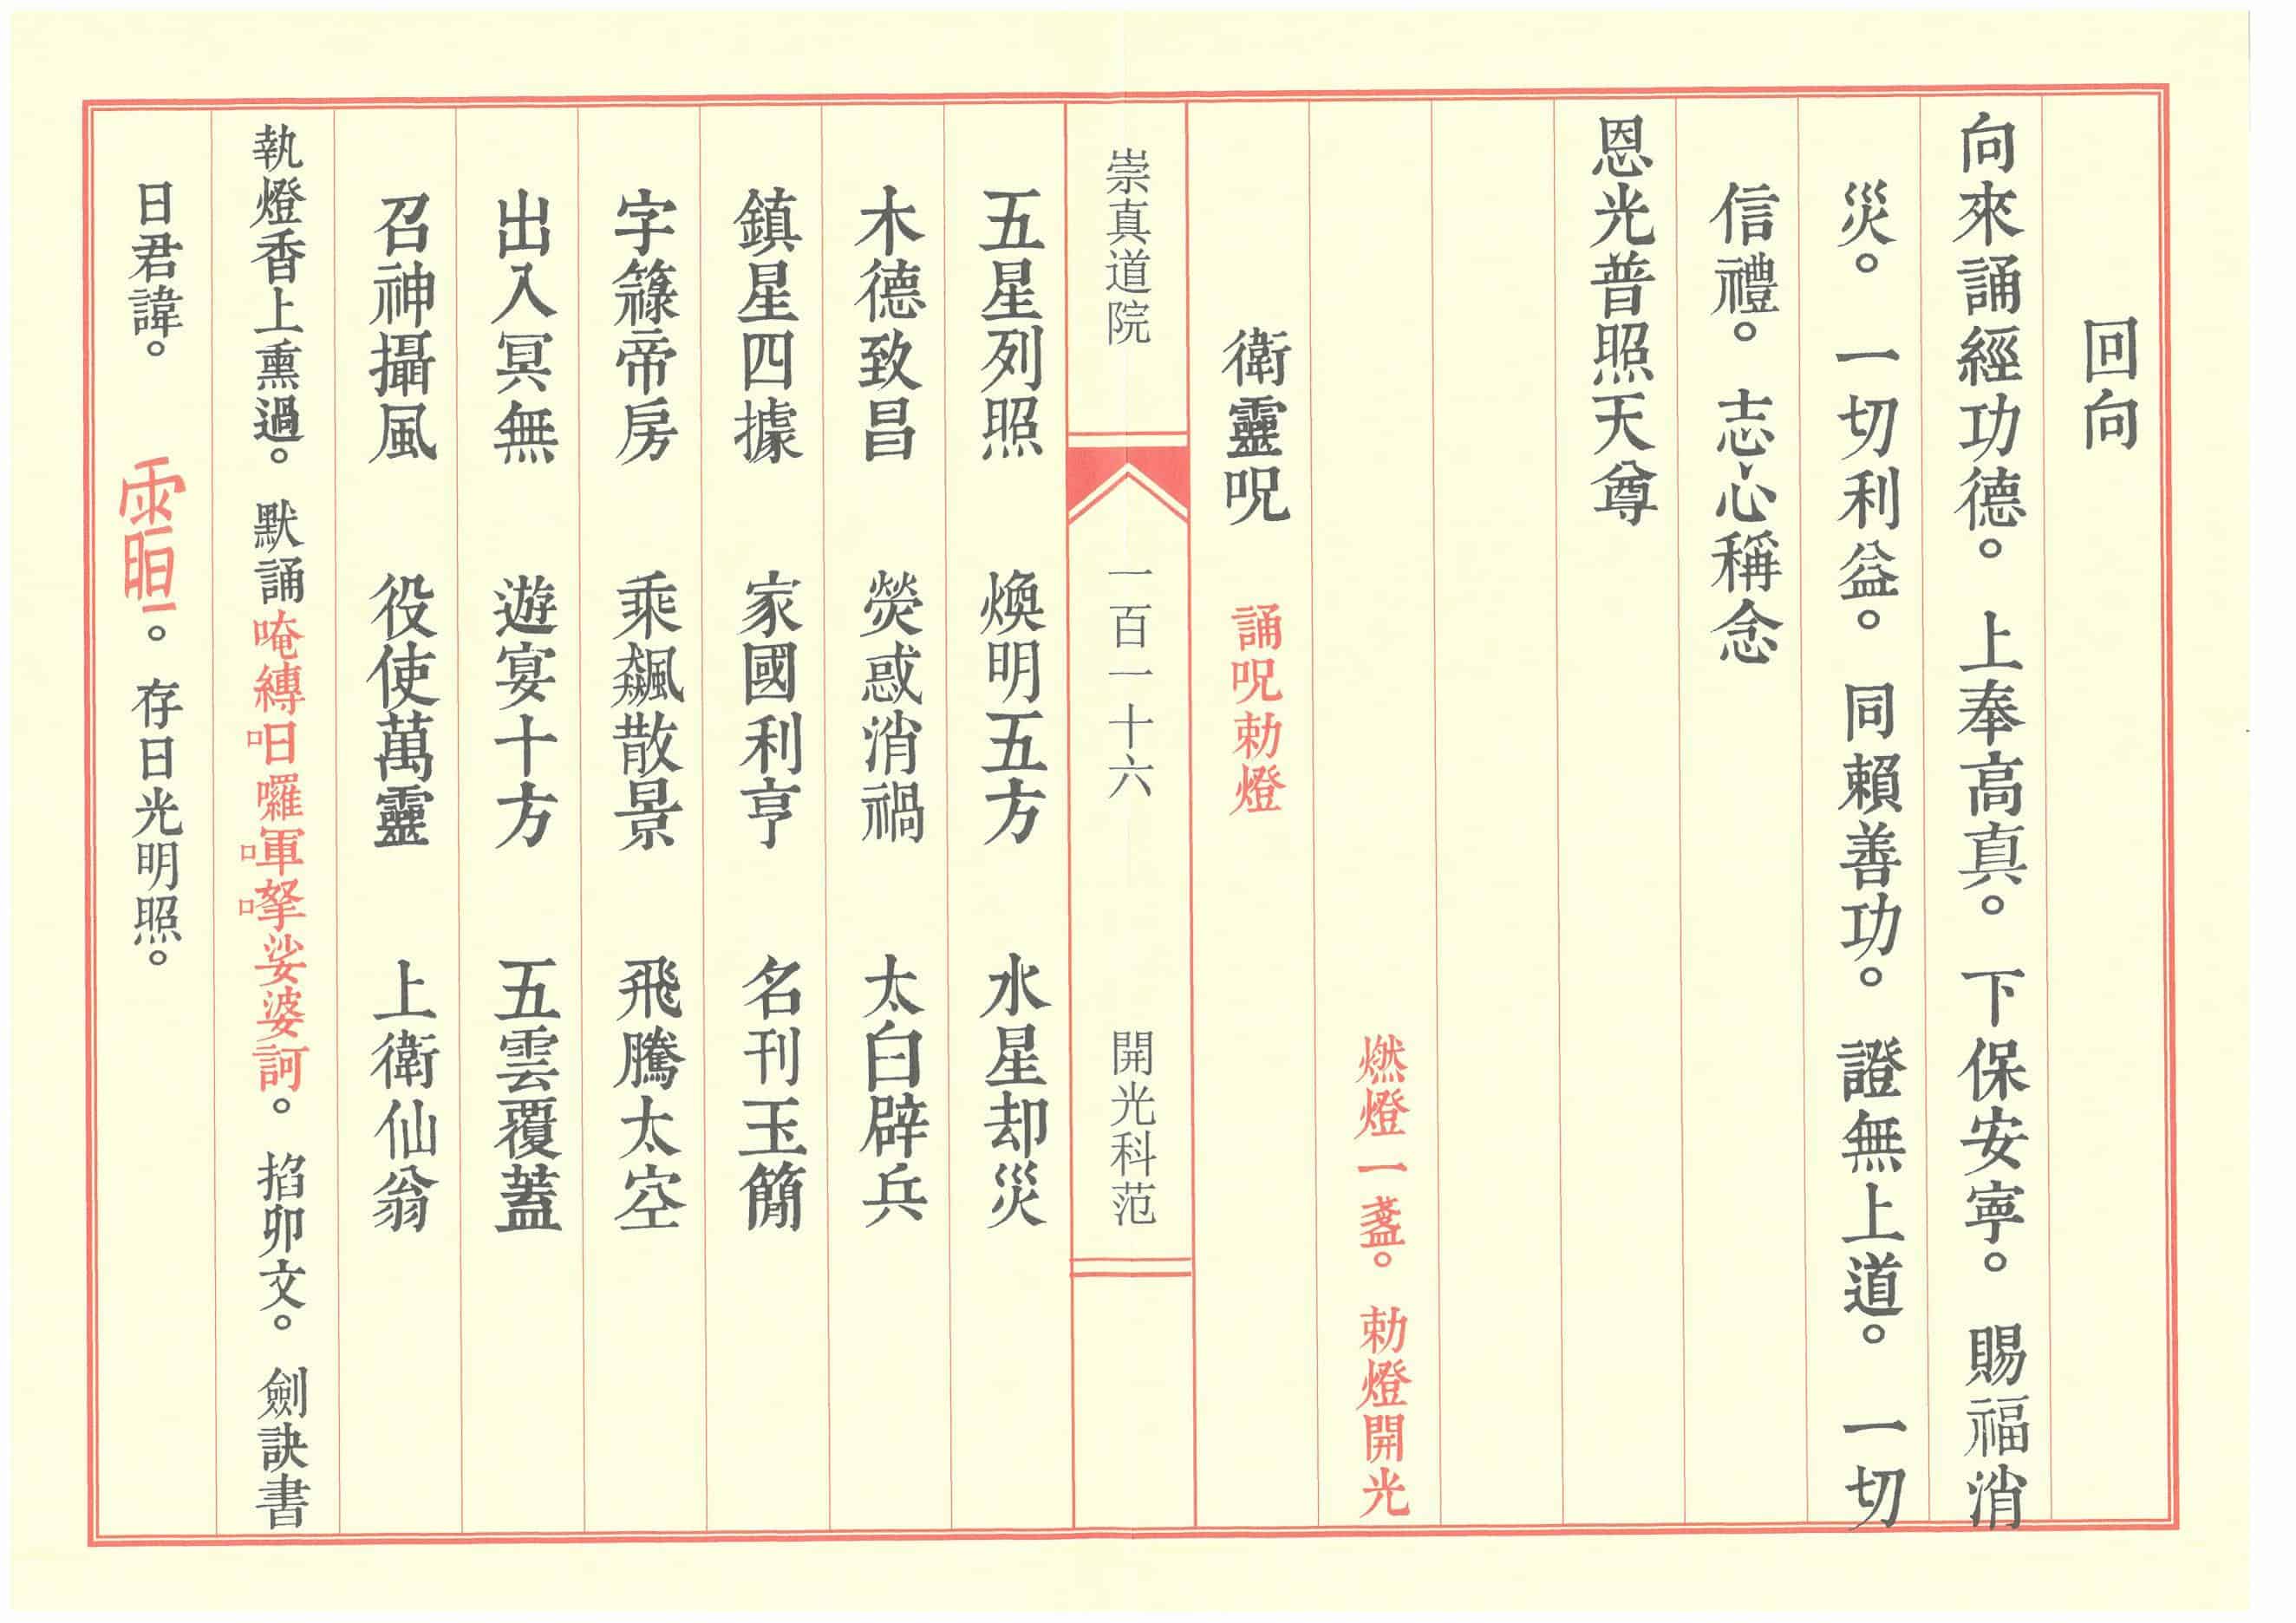 回向
向來誦經功德。上奉高真。下保安寧。賜福消
災。一切利益。同賴善功。證無上道。一切
信禮。志心稱念
恩光普照天尊
燃燈一盞。勅燈開光
衛靈呪 誦呪勅燈
崇真道院 一百一十六 開光科范
五星列照 煥明五方 水星却災
木德致昌 熒惑消禍 太白辟兵
鎮星四據 家國利亨 名刊玉簡
字籙帝房 乘飆散景 飛騰太空
出入冥無 遊宴十方 五雲覆蓋
召神攝風 役使萬靈 上衛仙翁
執燈香上熏過。默誦唵縛㗌囉㖞拏娑婆訶。掐卯文。劍訣書
日君諱。。存日光明照。